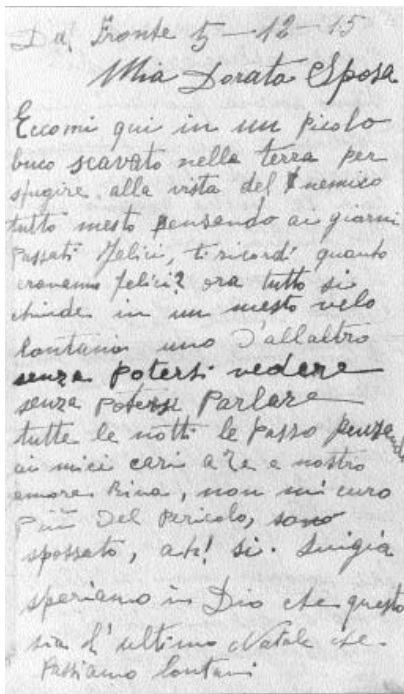 Dal Fronte 5-12-15
Mia Dorata Sposa
Eccomi qui in un picolo
buco scavato nella terra per
sfugire alla vista del nemico
tutto mesto pensando ai giorni
passati felici, ti ricordi quanto
eravamo felici? ora tutto si
chiude in un mesto velo
lontano uno d'allaltro
senza potersi vedere
senza potersi parlare
tutte le notti le passo
ai miei cari a te e nostro
amore Rina, non mi curo
più del pericolo, sono
spossato, ah! si. Luigia
speriamo in Dio che questo
sia l'ultimo Natale che
passiamo lontani